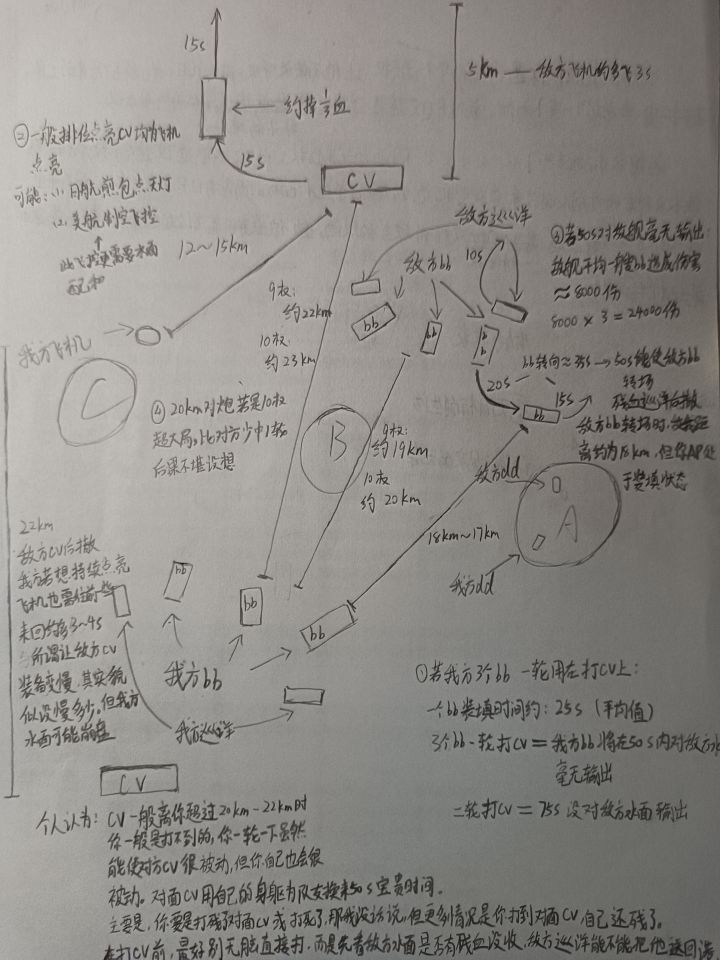 15s
5km — 敌方飞机约多飞3s
约掉1/3血
③一般排位点亮CV均为飞机
点亮
可能:(1).日航煎包点天灯
(2).美航制空飞控
此飞控更需要水面
配和
15s
CV
12~15km
敌方巡洋
敌方bb
10s
④若50s对敌舰毫无输出:
敌舰平均一轮bb造成伤害
≈8000伤
8000×3=24000伤
9权:
约22km
10权:
约23km
bb
bb
bb
bb转向≈35s→50s能使敌方bb
转场
残血巡洋后撤
20s
15s
bb
敌方bb转场时,
离约为18km,但你AP处
于装填状态
我方飞机
C
④20km对炮若是10权
超大局,bb对方少中1轮
后果不堪设想
B
9权:
约19km
10权
约20km
敌方dd
A
18km~17km
我方dd
22km
敌方CV后撤
我方若想持续点亮
飞机也需往前
来回约多3~4s
所谓让敌方CV
装备变慢,其实貌
似没慢多少。但我方
水面可能崩盘
bb
bb
bb
我方bb
我方巡洋
CV
①若我方3个bb一轮用在打CV上:
一个bb装填时间约:25s(平均值)
3个bb一轮打CV=我方bb将在50s内对敌方水
毫无输出
二轮打CV=75s没对敌方水面输出
个人认为:CV一般离你超过20km-22km时
你一般是打不到的,你一轮一下虽然
能使对方CV很被动,但你自己也会很
被动。对面CV用自己的身躯为队友换来50s宝贵时间。
主要是,你要是打残了对面CV或打死了,那我没话说,但更多情况是你打到对面CV,自己还残了。
在打CV前,最好别无脑直接打,而是先看敌方水面是否有残血没收,敌方巡洋能不能把他送回港